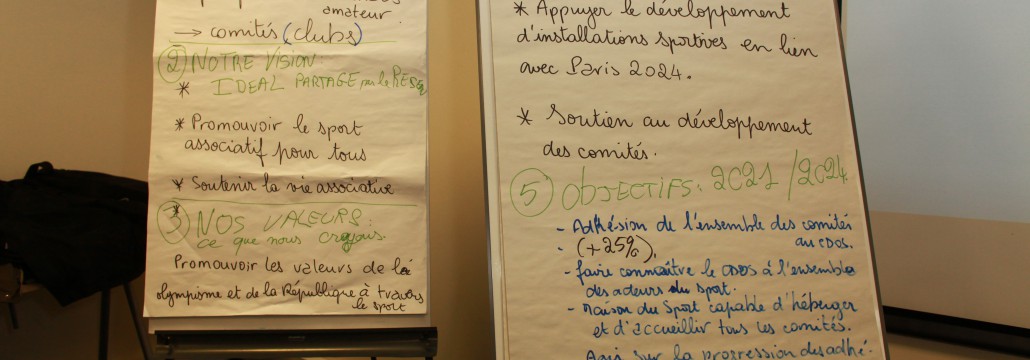 amateur.
→ comités (clubs)
② NOTRE VISION:
* IDEAL PARTAGE par le RESEAU
* Promouvoir le sport
associatif pour tous
* Soutenir la vie associative
③ NOS VALEURS:
ce que nous croyons.
Promouvoir les valeurs de l'
olympisme et de la République à travers
le sport
* Appuyer le développement
d'installations sportives en lien
avec Paris 2024.
* Soutien au développement
des comités.
⑤ OBJECTIFS: 2021/2024
- Adhésion de l'ensemble des comités
au CDOS.
- (+25%).
- faire connaître le CDOS à l'ensemble
des acteurs du sport.
- Maison du Sport capable d'héberger
et d'accueillir tous les comités.
sur la progression des adhé-